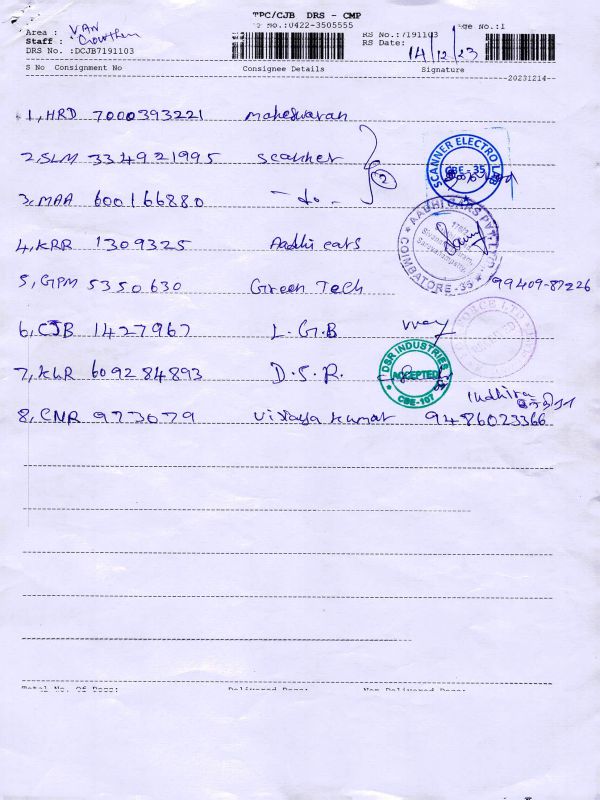 TPC/CJB DRS - CMP
No.:0422-3505555
Area : VAN
Staff : Gowtham
DRS No. :DCJB7191103
RS No.:7191103
RS Date: 14/12/23
ge No.:1
S No Consignment No Consignee Details Signature
20231214
1, HRD 7000393221 Maheswaran
2, SLM 334921995 Scanner
SCANNER ELECTRO LAB
CBE-35
3, MAA 600166880 - do - 2
AADHI CARS PVT LTD
COIMBATORE-35
4, KRR 1309325 Aadhi cars
5, GPM 5350630 Green Tech 99409-87226
6, CJB 1427967 L.G.B
7, KLR 609284893 D.S.R.
DSR INDUSTRIES
ACCEPTED
CBE-107
Indhira
இந்திரா
8, CNR 973079 Vijaya Kumar 9486023366
Total No. Of Docs: Delivered Docs: Non Delivered Docs: